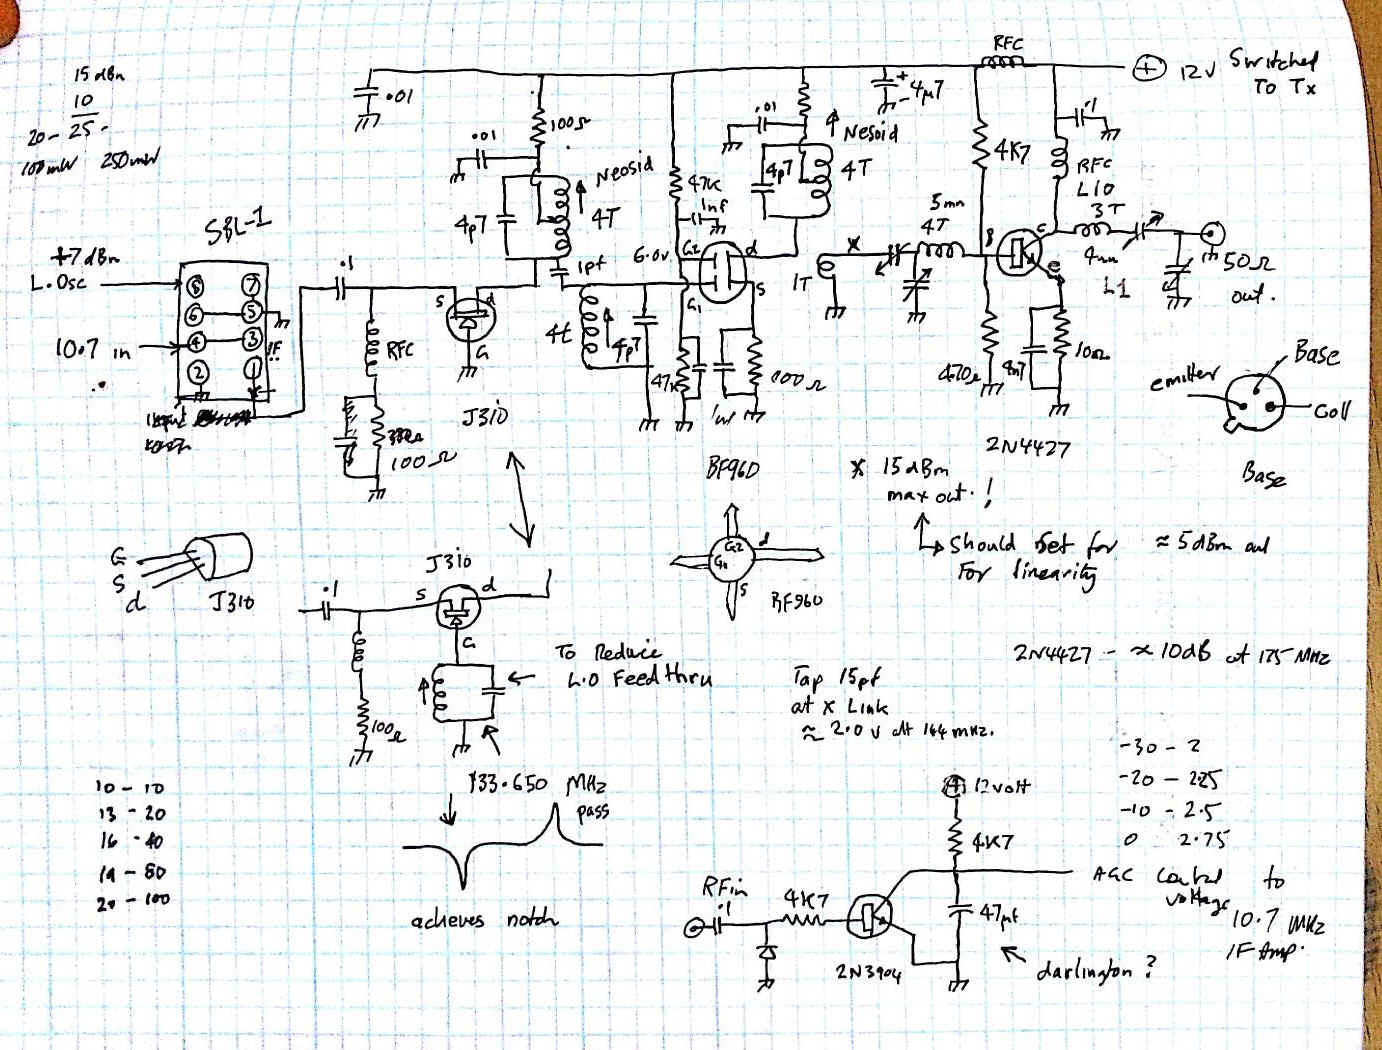 15 dBm
10
20 - 25.
100mW 250mW
RFC
12V Switched
To Tx
.01
100Ω
.01
Neosid
4p7
4T
47K
1nf
.01
Nesoid
4p7
4T
+
- 4µ7
4K7
.1
RFC
L10
3T
5mm
4T
4mm
L1
50Ω
out.
SBL-1
+7 dBm
L.Osc
10.7 in
8 7
6 5
4 3
2 1
IF
.1
RFC
100Ω
S d
G
J310
1pf
4t
4p7
6.0v
G2 d
G1 S
47K
1nf
100Ω
BF960
1T
x
B C
e
470Ω
4n7
10Ω
2N4427
emitter
Base
Coll
Base
* 15 dBm
max out. !
Should Set for ≈ 5 dBm out
For linearity
G
S
d
J310
.1
J310
S d
G
100Ω
To Reduce
L.O Feed thru
G2 d
G1
S
BF960
2N4427 - ≈ 10dB at 175 MHz
Tap 15pf
at x Link
≈ 2.0 v at 144 mHz.
-30 - 2
-20 - 225
-10 - 2.5
0 2.75
10 - 10
13 - 20
16 - 40
19 - 80
20 - 100
133.650 MHz
pass
achieves notch
12volt
4K7
AGC Control to
voltage
10.7 MHz
IF Amp.
RFin
.1
4K7
47µf
2N3904
darlington?